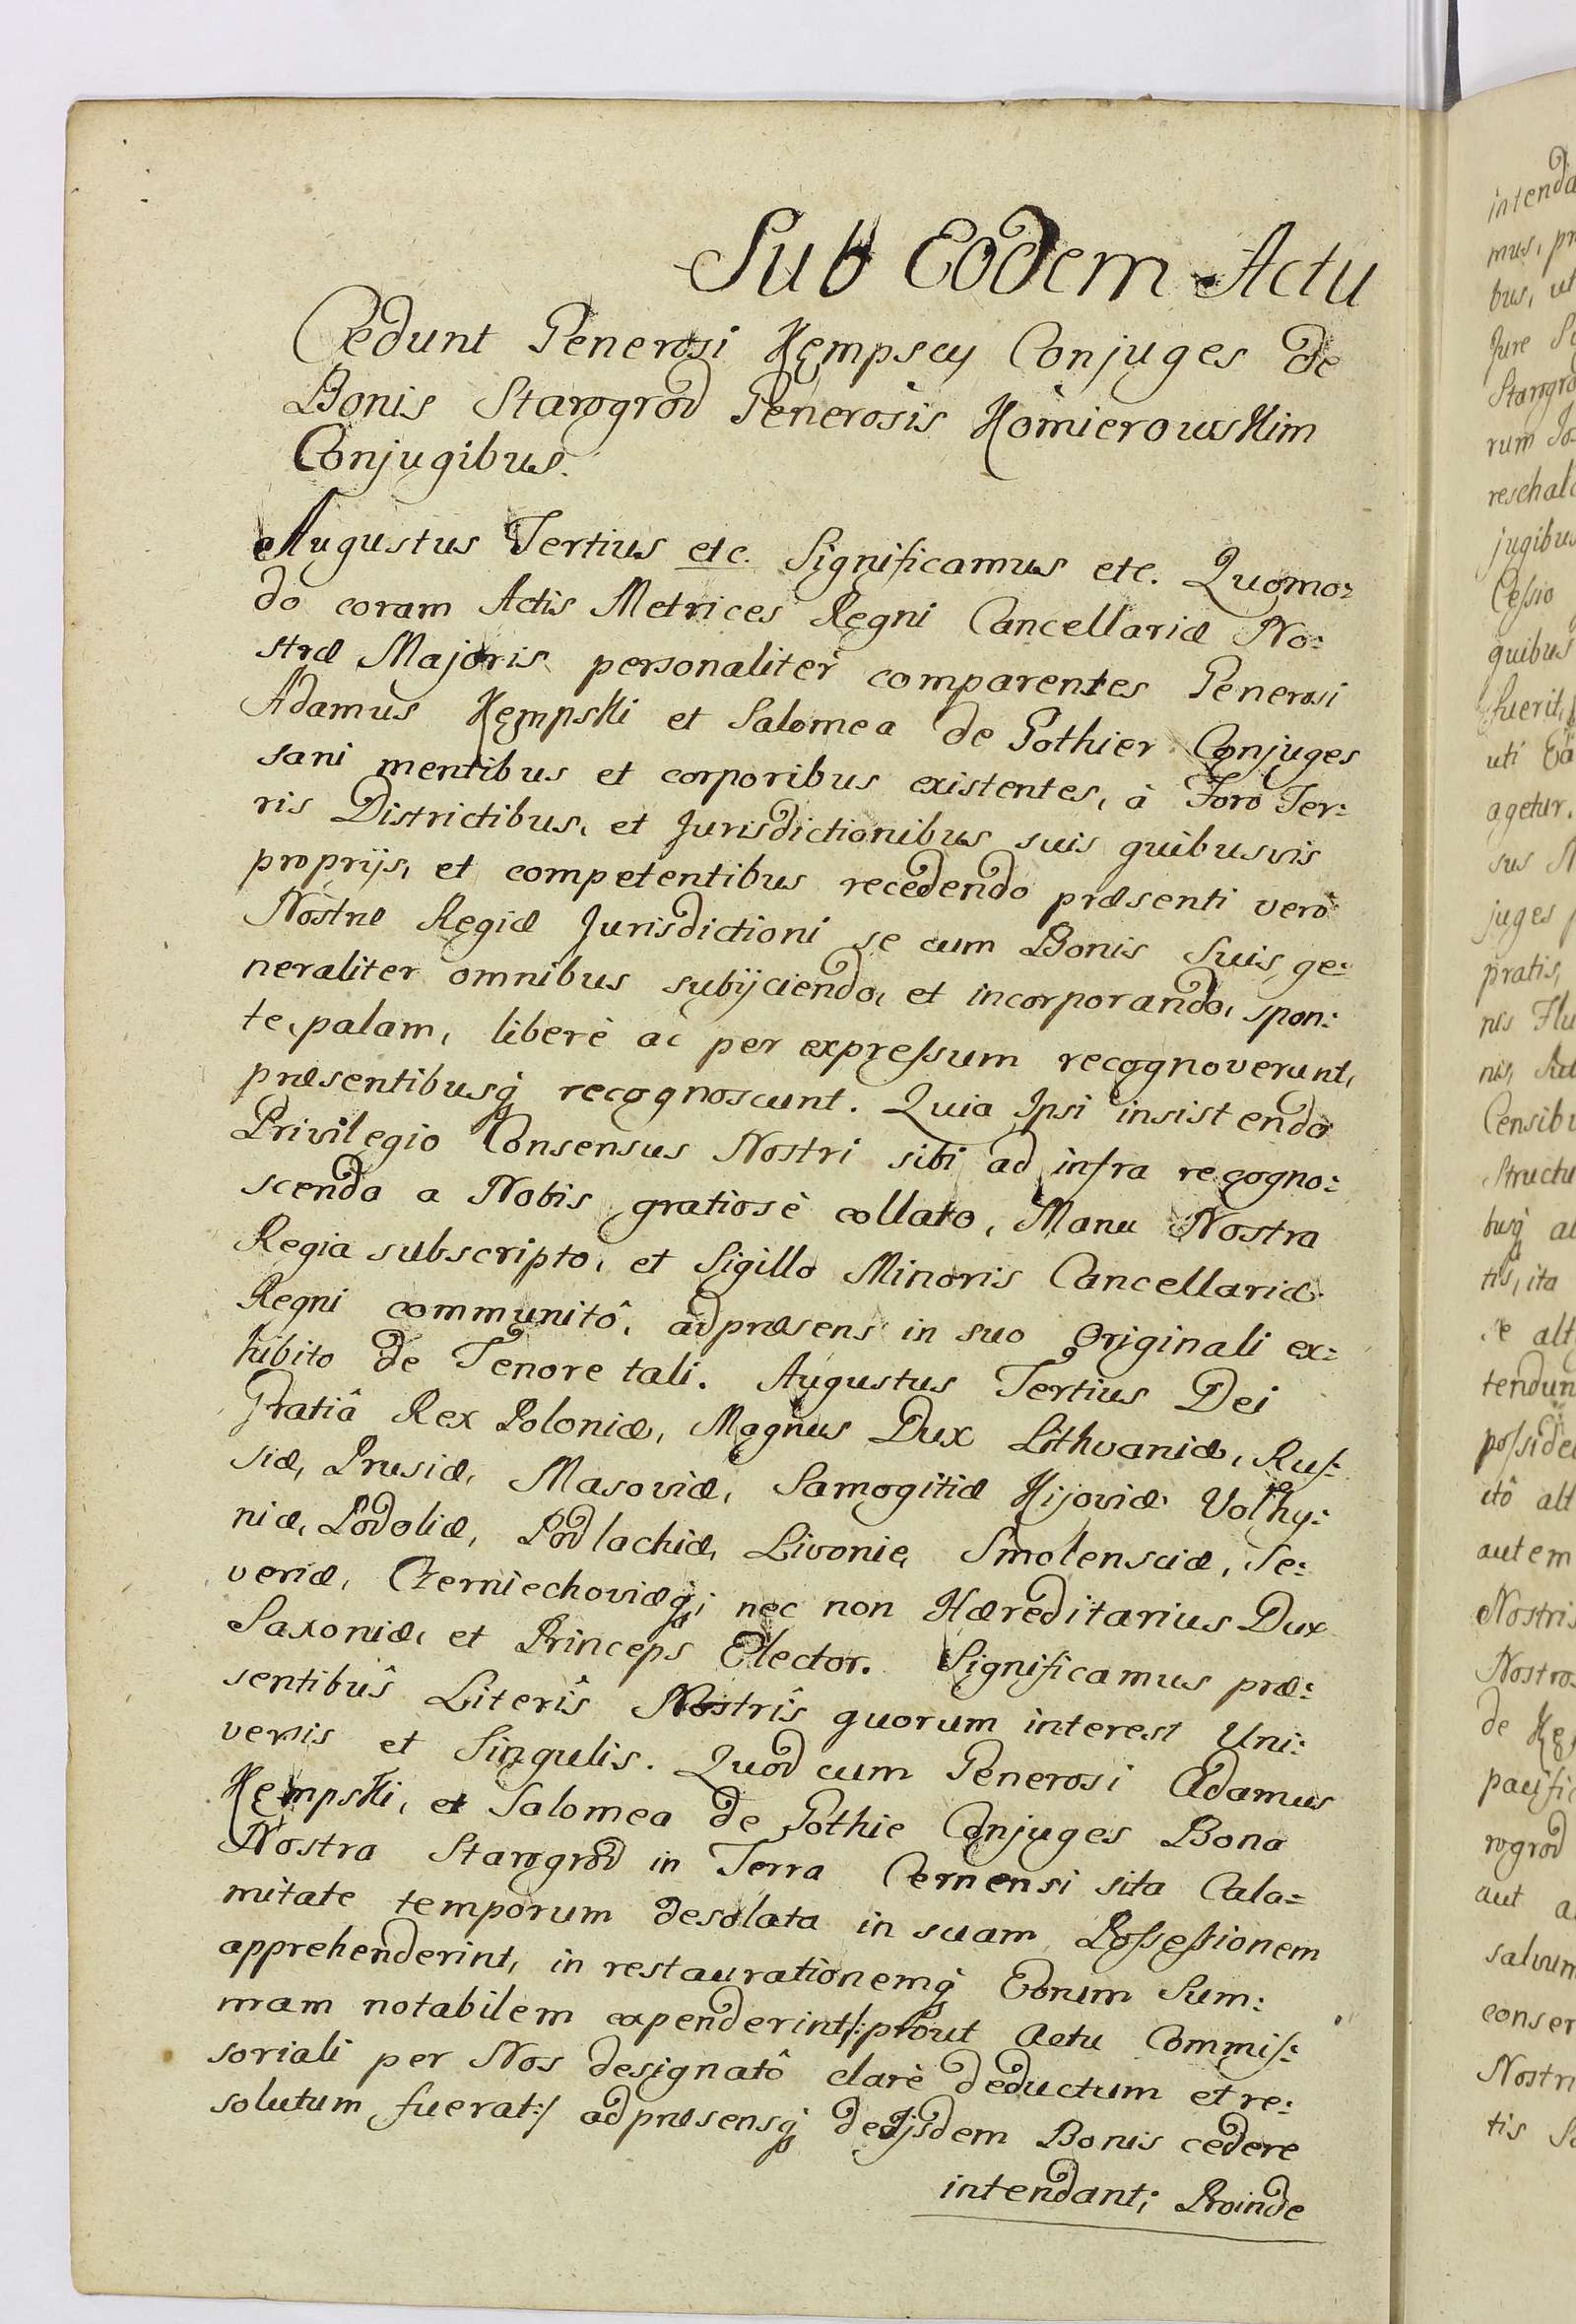 Sub Eodem Actu
Cedunt Generosi Kępscy Conjuges de
Bonis Starogrod Generosis Komierowskim
Conjugibus.
Augustus Tertius etc. Significamus etc. Quomo:
do coram Actis Metrices Regni Cancellariæ No:
stræ Majoris personaliter comparentes Generosi
Adamus Kempski et Salomea de Gothier Conjuges
sani mentibus et corporibus existentes, à Foro Ter:
ris Districtibus, et Jurisdictionibus suis quibusvis
proprijs, et competentibus recedendo præsenti verò
Nostræ Regiæ Jurisdictioni se cum Bonis Suis ge:
neraliter omnibus subijciendo, et incorporando, spon:
te, palam, liberè ac per expressum recognoverunt,
præsentibusq recognoscunt. Quia Ipsi insistendo
Privilegio Consensus Nostri sibi ad infra recogno:
scenda a Nobis gratiosè collato, Manu Nostra
Regia subscripto, et Sigillo Minoris Cancellariæ
Regni communitô, ad præsens in suo Originali ex:
hibito de Tenore tali. Augustus Tertius Dei
Gratiâ Rex Poloniæ, Magnus Dux Lithvaniæ, Rus:
siæ, Prusiæ, Masoviæ, Samogitiæ Kijoviæ Volhy:
niæ, Podoliæ, Podlachiæ, Livoniæ Smolensciæ, Se:
veriæ, Czerniechoviæq; nec non Hæreditarius Dux
Saxoniæ, et Princeps Elector. Significamus præ:
sentibûs Literîs Nostrîs quorum interest Uni:
versis et Singulis. Quod cum Generosi Adamus
Kempski, et Salomea de Gothie Conjuges Bona
Nostra Starogrod in Terra Cernensi sita Cala=
mitate temporum desolata in suam Possessionem
apprehenderint, in restaurationemq Eorum Sum:
mam notabilem expenderint /: prout Actu Commis:
soriali per Nos designatô clarè deductum et re:
solutum fuerat :/ ad præsensq de Ijsdem Bonis cedere
intendant; Proinde